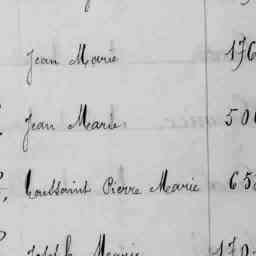 Jean Marie 176
Jean Marie 50
Toussaint Pierre Marie 65
Joseph Marie 170